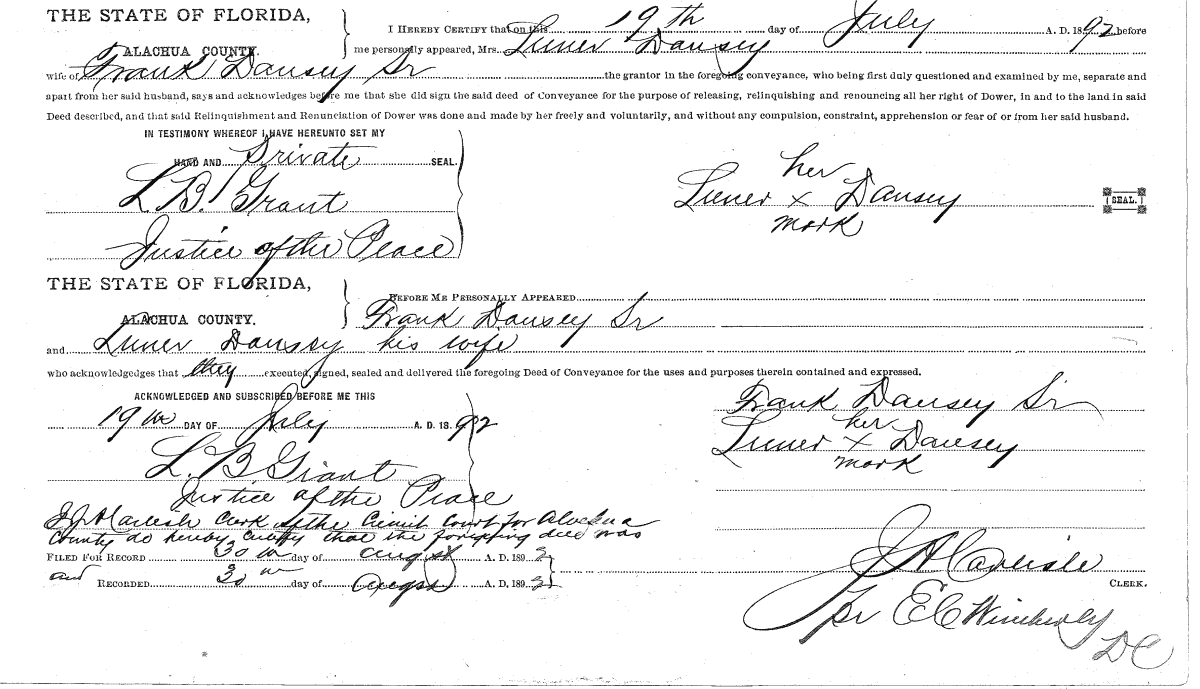 THE STATE OF FLORIDA,
ALACHUA COUNTY.
I HEREBY CERTIFY that on this 19th day of July A. D. 1892 before
me personally appeared, Mrs. Luner Dansey
wife of Frank Dansey Sr the grantor in the foregoing conveyance, who being first duly questioned and examined by me, separate and
apart from her said husband, says and acknowledges before me that she did sign the said deed of Conveyance for the purpose of releasing, relinquishing and renouncing all her right of Dower, in and to the land in said
Deed described, and that said Relinquishment and Renunciation of Dower was done and made by her freely and voluntarily, and without any compulsion, constraint, apprehension or fear of or from her said husband.
IN TESTIMONY WHEREOF I HAVE HEREUNTO SET MY
HAND AND Private SEAL.
L. B. Grant
Justice of the Peace
her
Luner x Dansey
mark
SEAL.
THE STATE OF FLORIDA,
ALACHUA COUNTY.
BEFORE ME PERSONALLY APPEARED
Frank Dansey Sr
and Luner Danssy his wife
who acknowledgedges that they executed, signed, sealed and delivered the foregoing Deed of Conveyance for the uses and purposes therein contained and expressed.
ACKNOWLEDGED AND SUBSCRIBED BEFORE ME THIS
19th DAY OF July A. D. 1892
L. B Grant
Justice of the Peace
Frank Dansey Sr
her
Luner x Dansey
mark
I J A Carlisle Clerk of the Circuit Court for Alachua
County do hereby certify that the foregoing deed was
FILED FOR RECORD 30th day of August A. D. 1892
and RECORDED 30th day of Augst A. D. 1892
J A Carlisle
CLERK.
pr E C Wimberly
D C